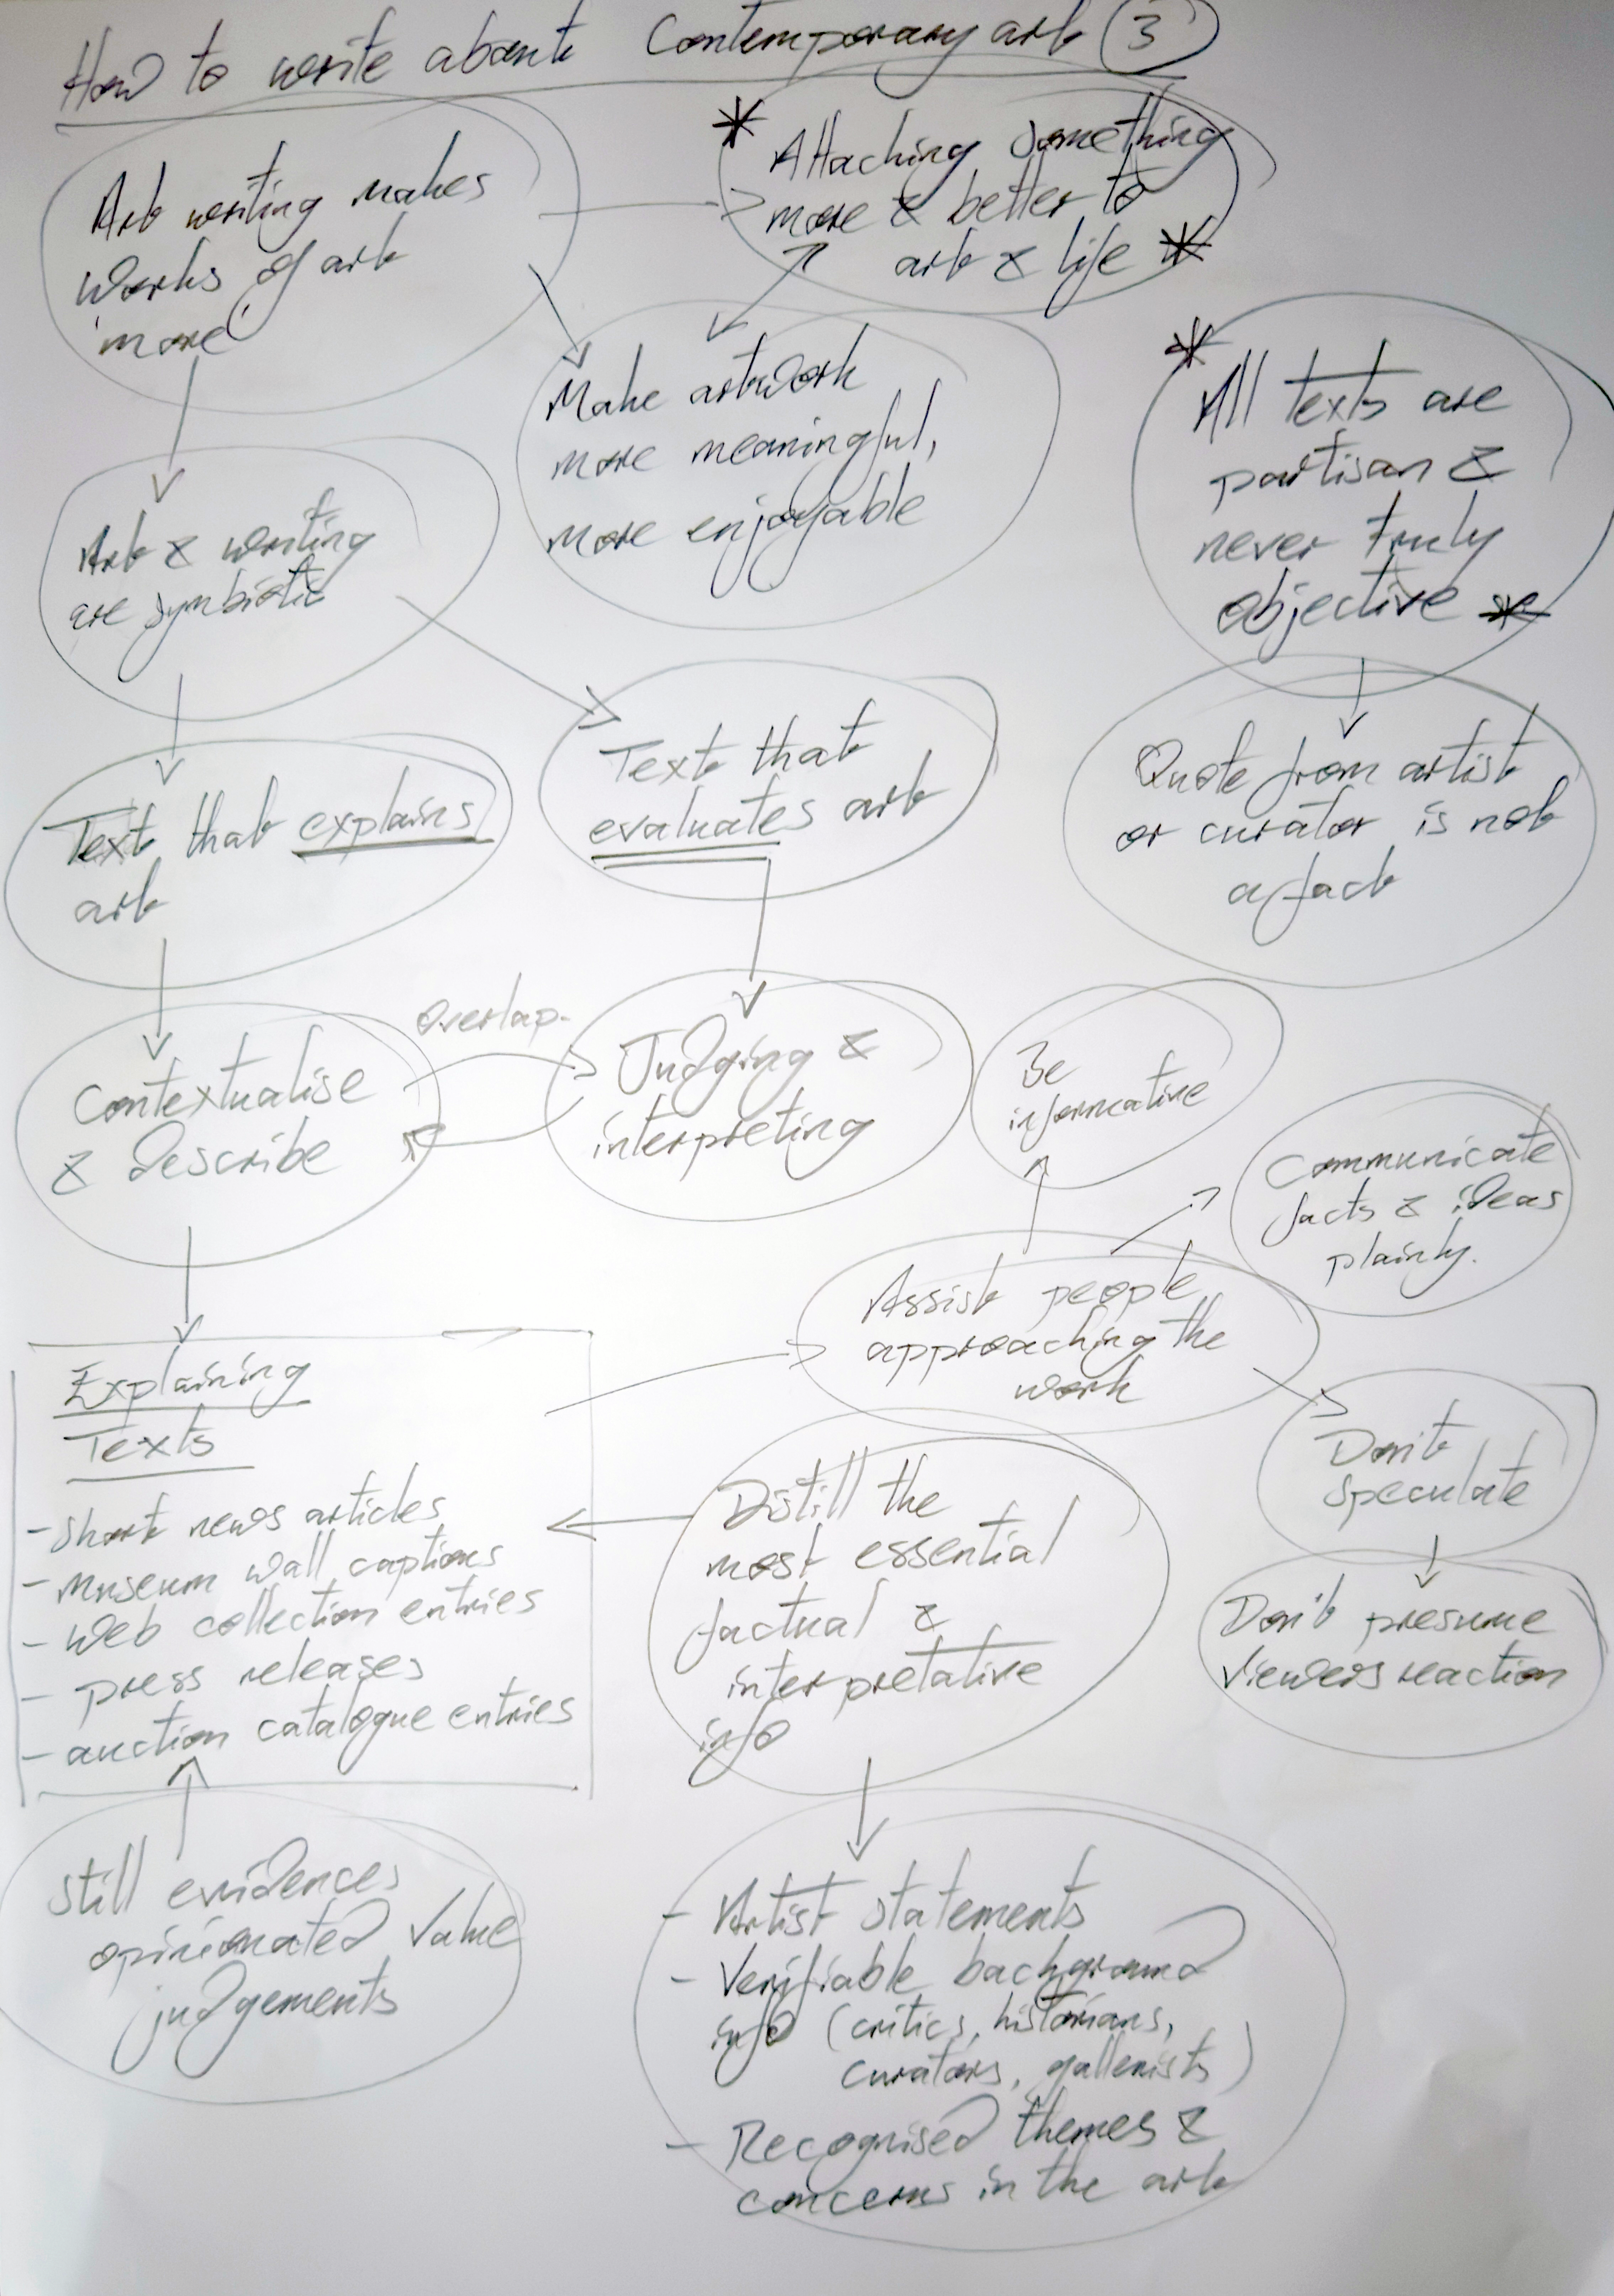 How to write about Contemporary art 3
Art writing makes
works of art
'more'
* Attaching something
more & better to
art & life *
Make artwork
more meaningful,
more enjoyable
* All texts are
partisan &
never truly
objective *
Art & writing
are symbiotic
Text that explains
art
Text that
evaluates art
Quote from artist
or curator is not
a fact
Contextualise
& describe
overlap.
Judging &
interpreting
Be
informative
Communicate
facts & ideas
plainly.
Assist people
approaching the
work
Don't
speculate
Don't presume
viewers reaction
Explaining
Texts
- short news articles
- museum wall captions
- web collection entries
- press releases
- auction catalogue entries
Distill the
most essential
factual &
interpretative
info
still evidences
opinionated value
judgements
- Artist statements
- Verifiable background
info (critics, historians,
curators, gallerists)
- Recognised themes &
concerns in the art